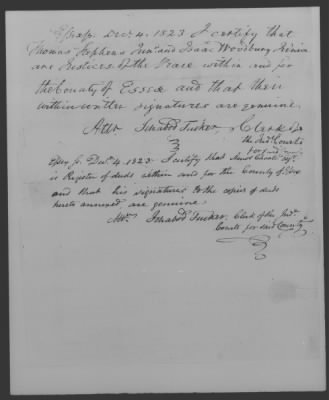 Essex ss. Decr. 4. 1823 I certify that
Thomas Stephens Junr. and Isaac Woodbury Junior
are Justices of the Peace within and for
the County of Essex and that their
within written signatures are genuine.
Attr. Ichabod Tucker, Clerk of
the Jud. Courts
for said
Essex ss. Decr. 4. 1823. I certify that Esqr.
is Register of deeds within and for the County of Essex
and that his signatures to the copies of deeds
hereto annexed are genuine.
Attr. Ichabod Tucker, Clerk of the Jud.
Courts for said County